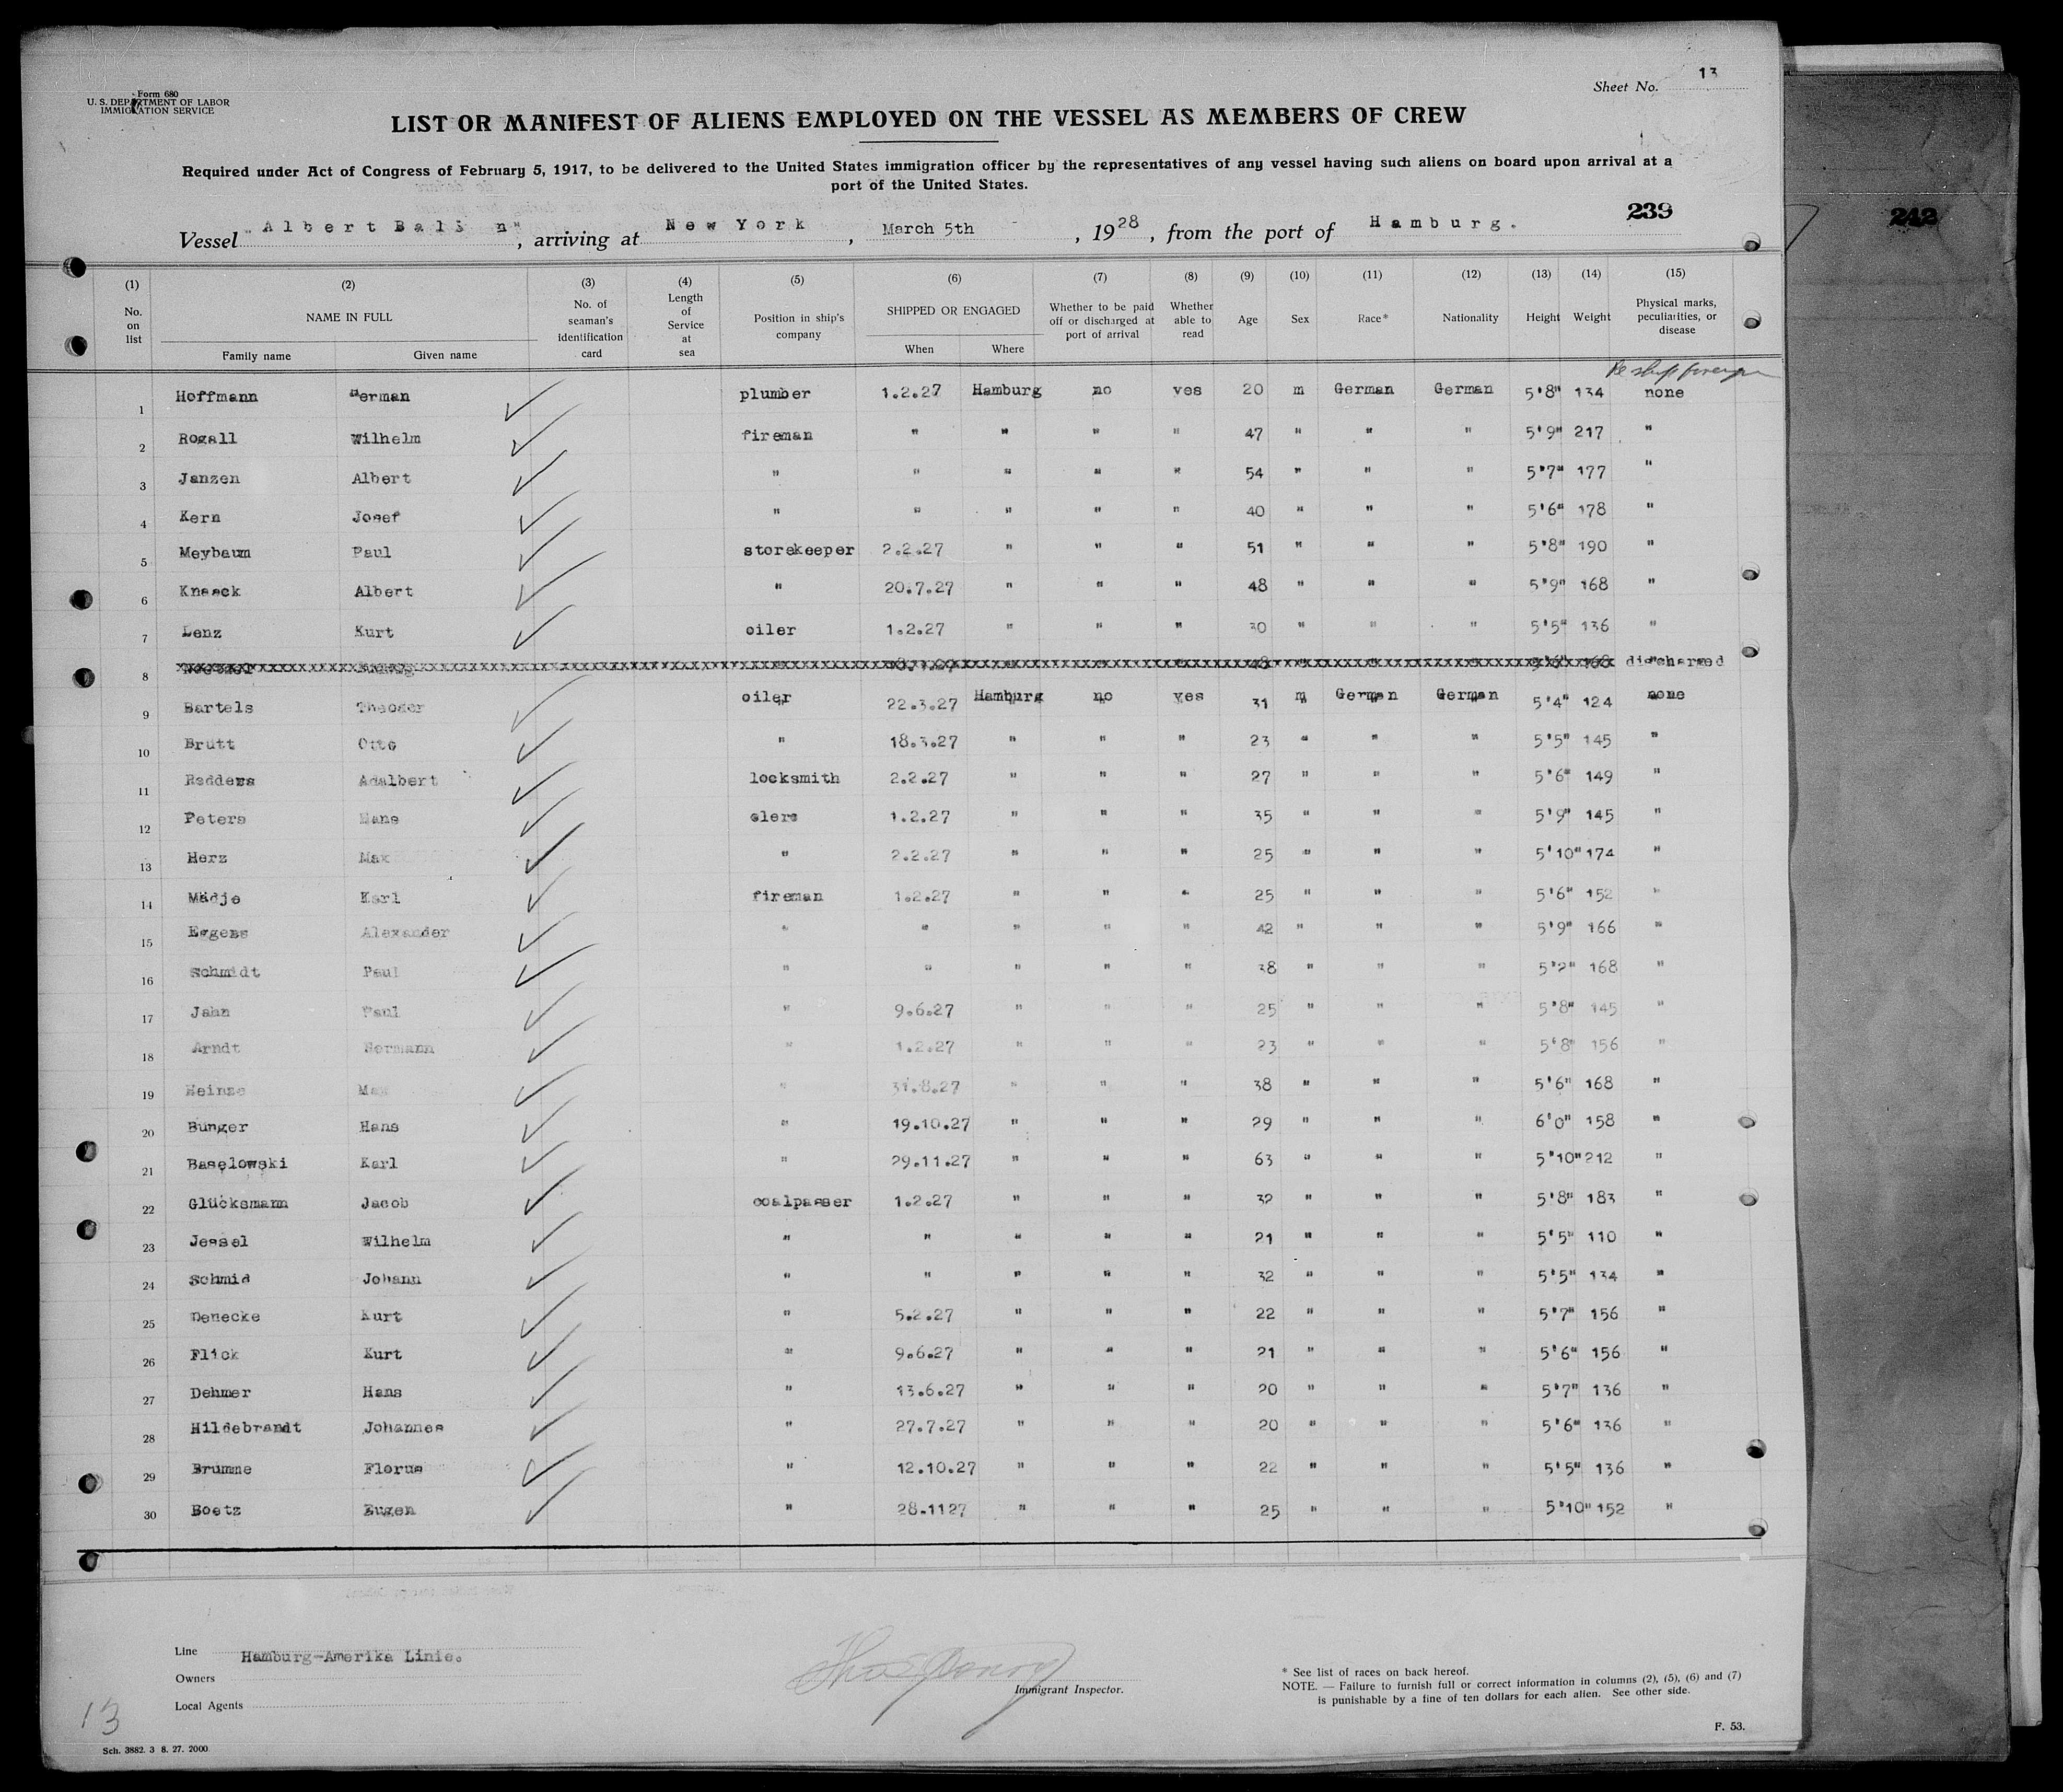 Form 680
U. S. DEPARTMENT OF LABOR
IMMIGRATION SERVICE
Sheet No. 13
LIST OR MANIFEST OF ALIENS EMPLOYED ON THE VESSEL AS MEMBERS OF CREW
Required under Act of Congress of February 5, 1917, to be delivered to the United States immigration officer by the representatives of any vessel having such aliens on board upon arrival at a
port of the United States.
239
242
Vessel "Albert Ballin", arriving at New York, March 5th, 1928, from the port of Hamburg.
(1) (2) (3) (4) (5) (6) (7) (8) (9) (10) (11) (12) (13) (14) (15)
No. on list NAME IN FULL Family name Given name No. of seaman's identification card Length of Service at sea Position in ship's company SHIPPED OR ENGAGED When Where Whether to be paid off or discharged at port of arrival Whether able to read Age Sex Race* Nationality Height Weight Physical marks, peculiarities, or disease
Re ship foreign
1 Hoffmann Herman plumber 1.2.27 Hamburg no yes 20 m German German 5'8" 134 none
2 Rogall Wilhelm fireman " " " " 47 " " " 5'9" 217 "
3 Janzen Albert " " " " " 54 " " " 5'7" 177 "
4 Kern Josef " " " " " 40 " " " 5'6" 178 "
5 Meybaum Paul storekeeper 2.2.27 " " " 51 " " " 5'8" 190 "
6 Knaack Albert " 20.7.27 " " " 48 " " " 5'9" 168 "
7 Lenz Kurt oiler 1.2.27 " " " 30 " " " 5'5" 136 "
8 discharged
9 Bartels Theodor oiler 22.3.27 Hamburg no yes 31 m German German 5'4" 124 none
10 Brütt Otto " 18.3.27 " " " 23 " " " 5'5" 145 "
11 Redders Adalbert locksmith 2.2.27 " " " 27 " " " 5'6" 149 "
12 Peters Hans clerc 1.2.27 " " " 35 " " " 5'9" 145 "
13 Herz Max " 2.2.27 " " " 25 " " " 5'10" 174 "
14 Mädje Karl fireman 1.2.27 " " " 25 " " " 5'6" 152 "
15 Eggens Alexander " " " " " 42 " " " 5'9" 166 "
16 Schmidt Paul " " " " " 38 " " " 5'2" 168 "
17 Jahn Paul " 9.6.27 " " " 25 " " " 5'8" 145 "
18 Arndt Hermann " 1.2.27 " " " 23 " " " 5'8" 156 "
19 Heinze Max " 31.8.27 " " " 38 " " " 5'6" 168 "
20 Bünger Hans " 19.10.27 " " " 29 " " " 6'0" 158 "
21 Baselowski Karl " 29.11.27 " " " 63 " " " 5'10" 212 "
22 Glücksmann Jacob coalpasser 1.2.27 " " " 32 " " " 5'8" 183 "
23 Jessel Wilhelm " " " " " 21 " " " 5'5" 110 "
24 Schmid Johann " " " " " 32 " " " 5'5" 134 "
25 Denecke Kurt " 5.2.27 " " " 22 " " " 5'7" 156 "
26 Flick Kurt " 9.6.27 " " " 21 " " " 5'6" 156 "
27 Dehmer Hans " 13.6.27 " " " 20 " " " 5'7" 136 "
28 Hildebrandt Johannes " 27.7.27 " " " 20 " " " 5'6" 136 "
29 Brumme Florus " 12.10.27 " " " 22 " " " 5'5" 136 "
30 Boetz Eugen " 28.1127 " " " 25 " " " 5'10" 152 "
Line Hamburg-Amerika Linie.
Owners
Local Agents
Immigrant Inspector.
* See list of races on back hereof.
NOTE. — Failure to furnish full or correct information in columns (2), (5), (6) and (7)
is punishable by a fine of ten dollars for each alien. See other side.
F. 53.
13
Sch. 3882. 3 8. 27. 2000